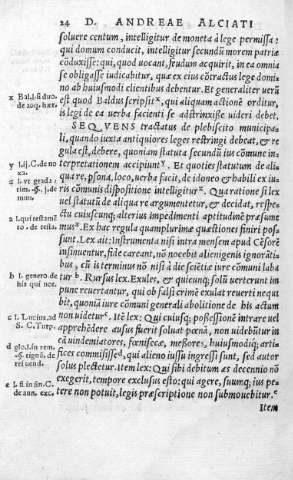 24 D. ANDREAE ALCIATI
soluere centum, intelligitur de moneta à lege permissa:
qui domum conducit, intelligitur secundũ morem patriæ
cõduxisse: qui, quod uocant, feudum acquirit, in ea omnia
se obligasse iudicabitur, quæ ex eius cõtractus lege domi-
no ab huiusmodi clientibus debentur. Et generaliter uerũ
x Bal. l. si duo.
de acq. hær.
est quod Baldus scripsit x, qui aliquam actionẽ orditur,
is legi de ea uerba facienti se adstrinxisse uideri debet.
SEQVENS tractatus de plebiscito municipa-
li, quando iuxta antiquiores leges restringi debeat, & re
gula est, debere, quoniam statuta secundũ ius cõmune in-
terpretationem accipiunt y. Et quoties statutum de aliĩ
qua re, persona, loco, uerba facit, de idoneo & habili ex iu-
ris cõmunis dispositione intelligitur z. Qua ratione si lex
uel statutũ de aliqua re argumentetur, & decidat, respe-
ctu cuiuscunque alterius impedimenti aptitudinẽ præsume
a l. qui testamẽ
to. de testa.
mus a. Ex hac regula quamplurimæ quæstiones finiri pos-
sunt. Lex ait: Instrumenta nisi intra mensem apud Cẽsorẽ
insinuentur, fide careant, nõ nocebit alienigenis ignorãtia
bus, cũ is terminus nõ nisi à die sciẽtiæ iure cõmuni laba
b l. genero de
his qui not.
tur b. Rursus lex, Exules, & quicunque soli uerterunt im
pune reuertantur, qui ob falsi crimẽ exulat reuerti nequi
bit, quoniã iure cõmuni generali abolitione de his actum
non uidetur c. Itẽ lex: Qui cuiusque possessionẽ intrare uel
apprehẽdere ausus fuerit soluat pœnã, non uidebũtur in
ea uindemiatores, fœnisecæ, messores, huiusmodique arti-
fices commisisse d, qui alieno iussu ingressi sunt, sed autor
solus plectetur. Item lex: Qui sibi debitum as decennio nõ
exegerit, tempore exclusus esto: qui agere, suumque ius pe-
e l. si in fin. C.
de ann. exc.
tere non potuit, legis præscriptione non submouebitur e.
Item